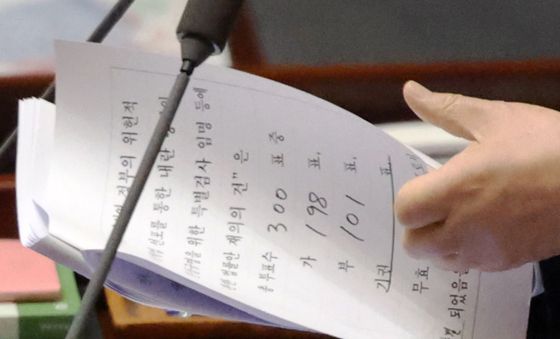 정부의 위헌적
선포를 통한 내란
위한 특별검사 임명 등에
법률안 재의의 건"은
총투표수 300 표 중
가 198 표,
부 101 표,
기권 표
무효
되었음을